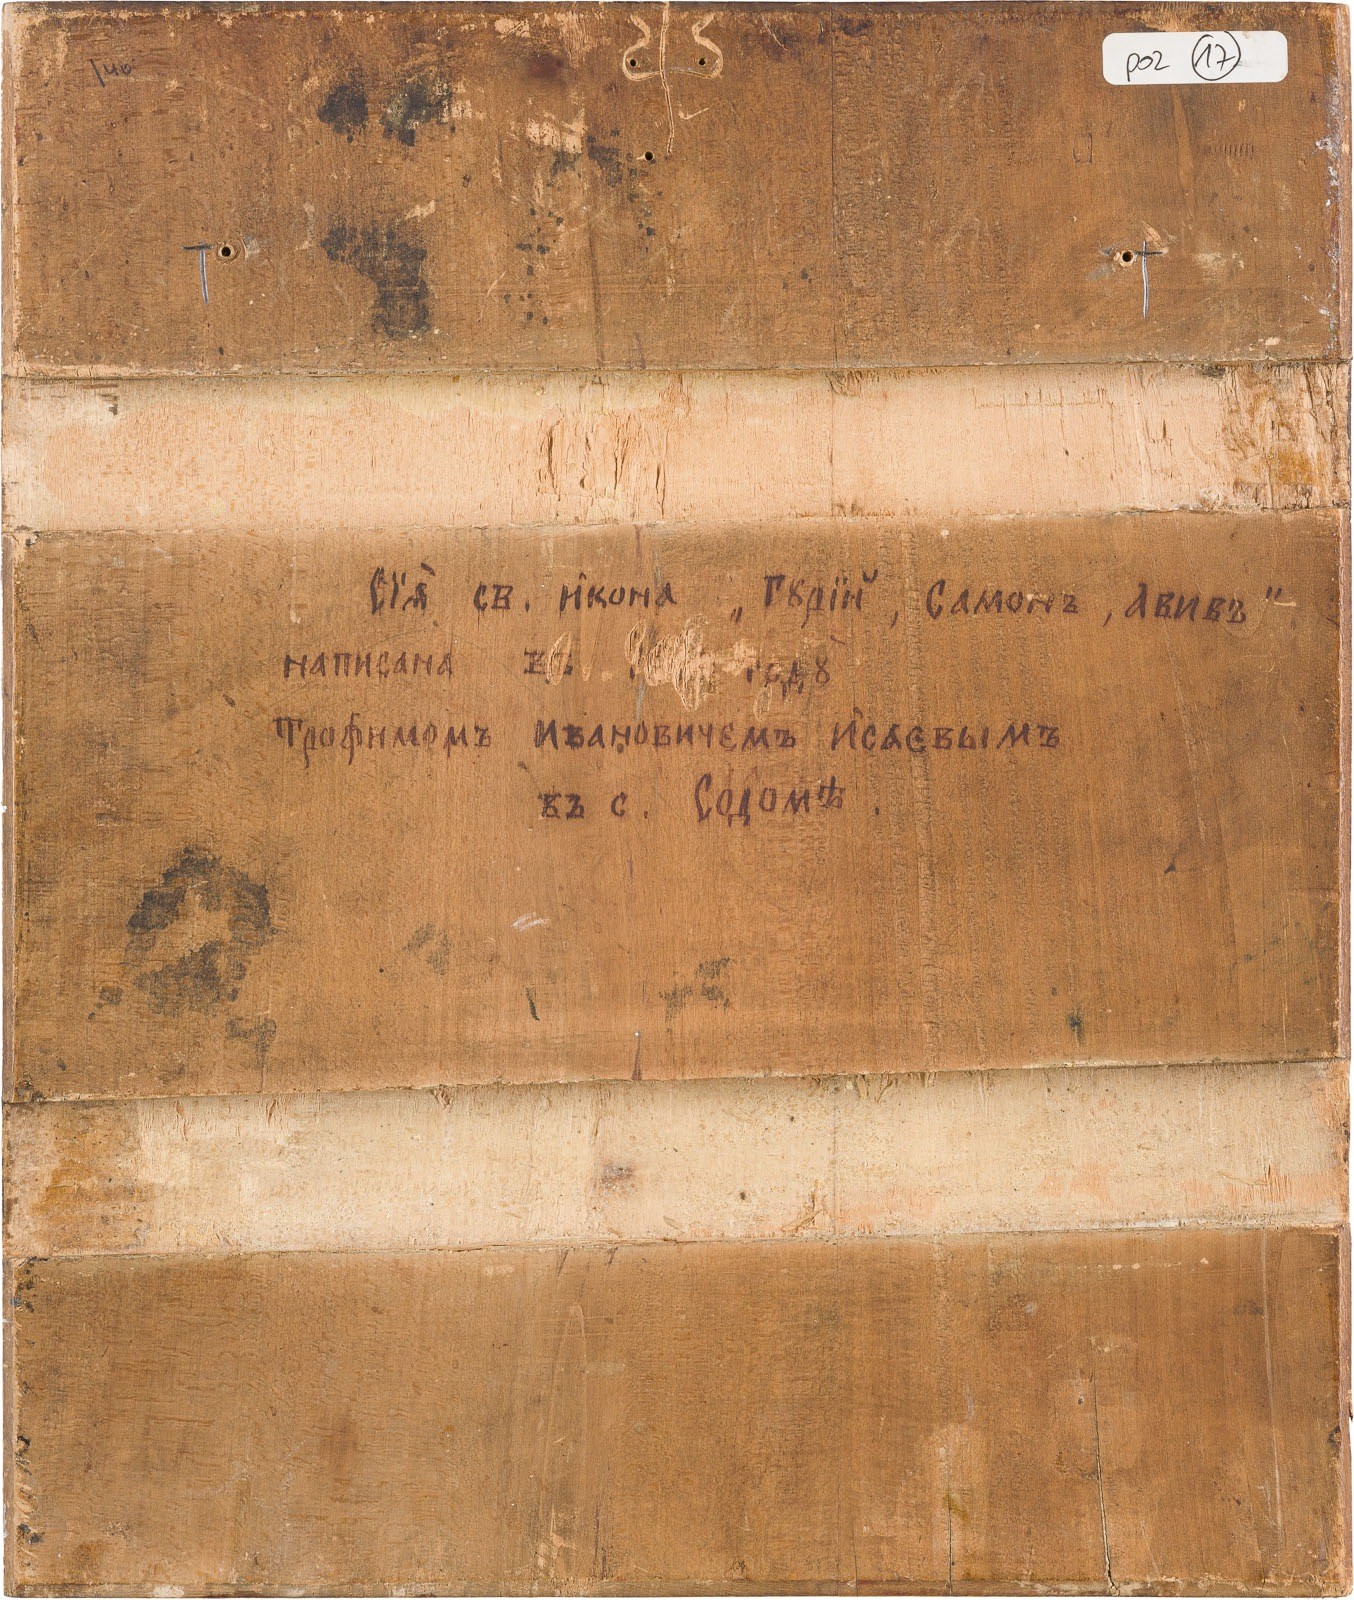 po2 17
Сїѧ̀ св. и҆кона „Гꙋрїй, Самонъ, Авивъ"
написана въ годꙋ
Трофимомъ Ивановичемъ Исаевымъ
въ с. Содомѣ.